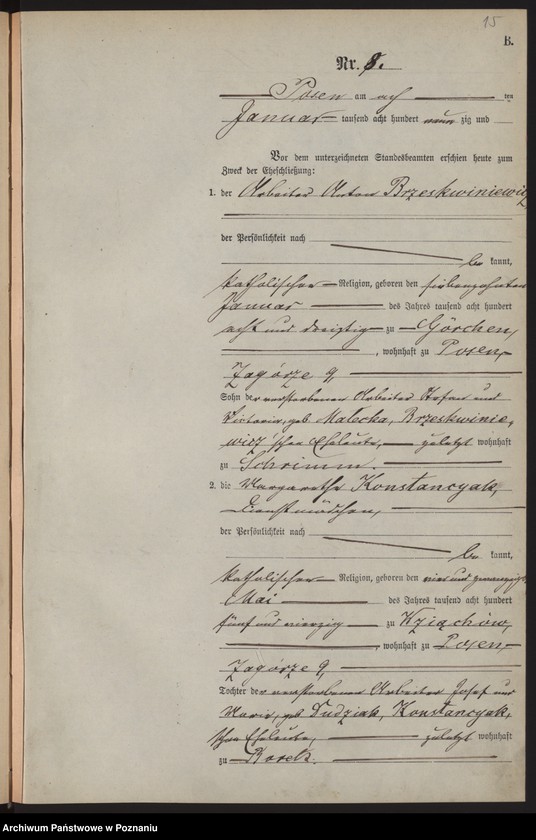 15
B.
Nr. 8.
Posen am acht ten
Januar tausend acht hundert neunzig und
Vor dem unterzeichneten Standesbeamten erschien heute zum
Zweck der Eheschließung:
1. der Arbeiter Anton Brzeskwiniewicz
der Persönlichkeit nach
be kannt,
katholischer Religion, geboren den siebenzehnten
Januar des Jahres tausend acht hundert
acht und dreißig zu Görchen,
, wohnhaft zu Posen,
Zagórze 9,
Sohn der verstorbenen Arbeiter Stefan und
Victoria, geb. Malecka, Brzeskwinie-
wicz'schen Eheleute, zuletzt wohnhaft
zu Schrimm.
2. die Margarethe Konstancyak,
Dienstmädchen,
der Persönlichkeit nach
be kannt,
katholischer Religion, geboren den vier und zwanzigsten
Mai des Jahres tausend acht hundert
fünf und vierzig zu Wziąchów,
, wohnhaft zu Posen,
Zagórze 9,
Tochter der verstorbenen Arbeiter Josef und
Marie, geb. Dudziak, Konstancyak,
'schen Eheleute, zuletzt wohnhaft
zu Borek.
Archiwum Państwowe w Poznaniu